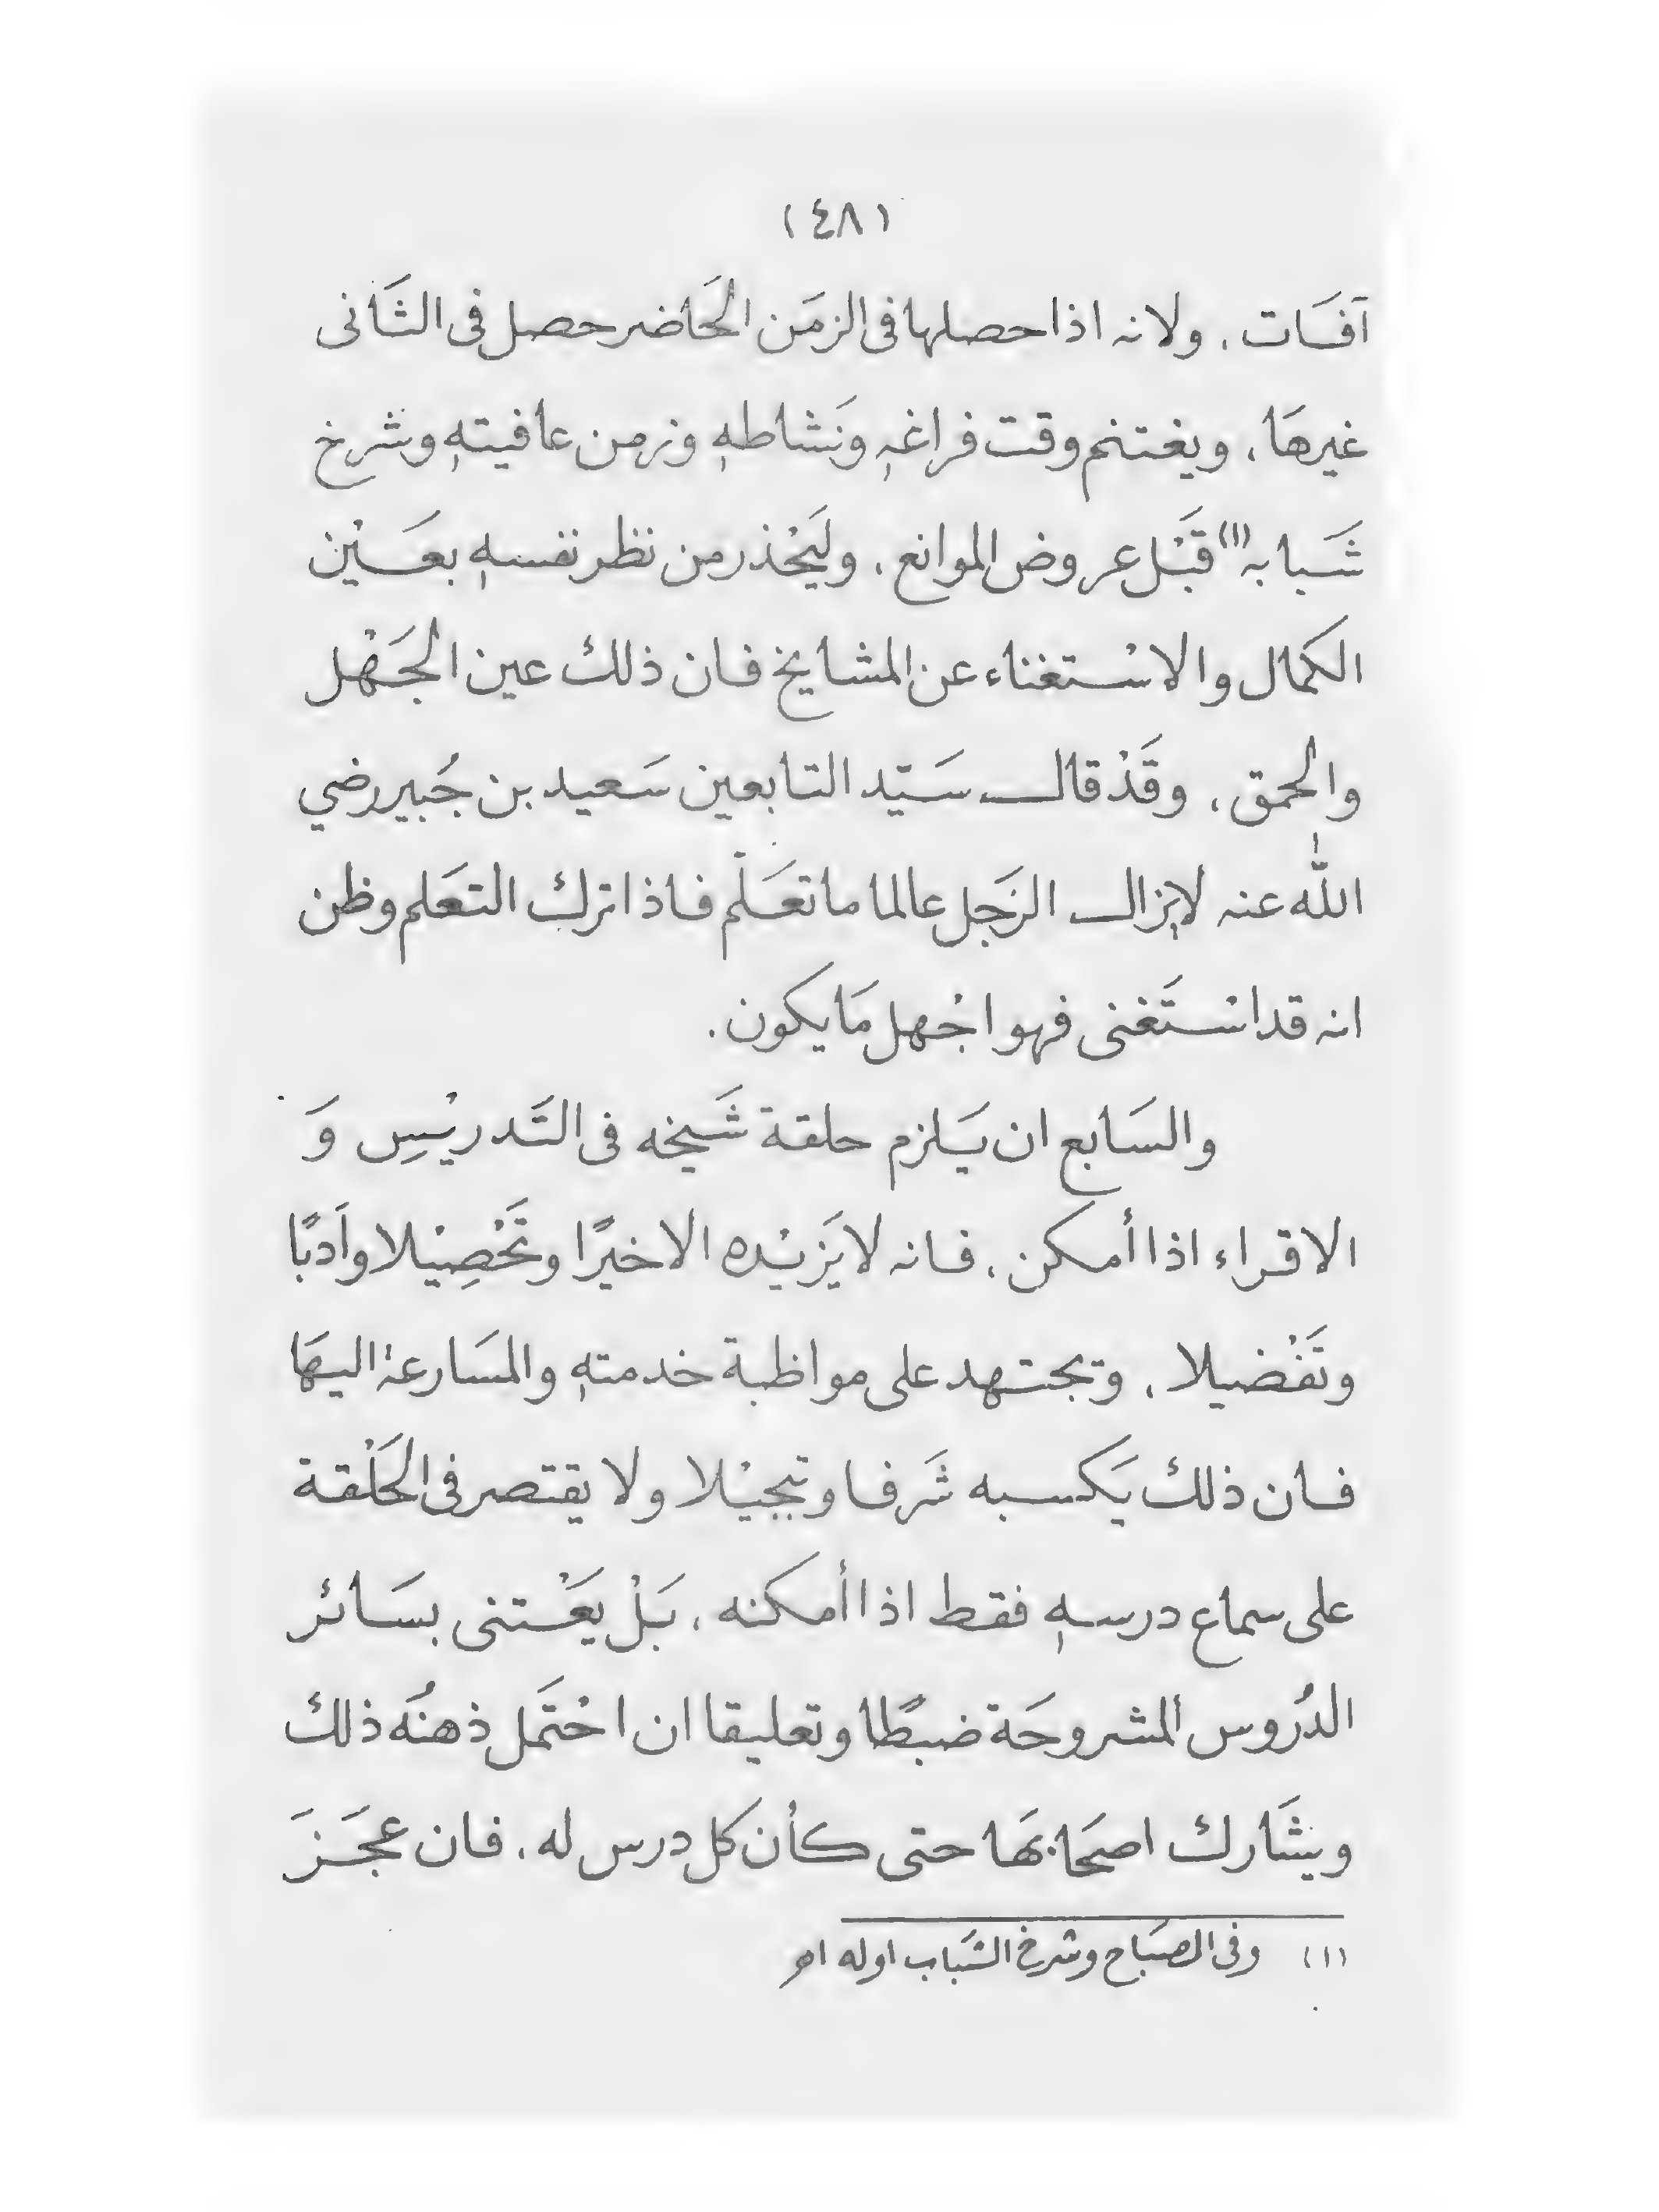 (٤٨)
آفَات، ولانه اذا حصلها فى الزمَن الحَاضر حصل فى الثَانى
غيرهَا، ويغتنم وقت فراغهِ ونَشاطهِ وزمن عافيتهِ وشرخ
شَبابه(١) قَبْل عروض الموانع، وليَحْذر من نظر نفسهِ بعَيْن
الكمال والاسْتغناء عن المشايخ فان ذلك عين الجَهْل
والحمق، وقَدْ قال سَيّد التابعين سَعيد بن جُبير رضي
الله عنه لايزال الرَجل عالما ما تعَلّم فاذا ترك التعَلم وظن
انه قد اسْتَغنى فهو اجْهل مَا يكون.
والسَابع ان يَلزم حلقة شَيخه فى التَدريْسِ وَ
الاقراء اذا أمكن، فانه لا يَزيْده الا خيرًا وتَحْصِيْلا واَدبًا
وتَفْضيلا، وتجتهد على مواظبة خدمتهِ والمسَارعة اليهَا
فان ذلك يَكسبه شَرفا وتبجيْلا ولا يقتصر فى الحَلْقة
على سماع درسهِ فقط اذا أمكنه، بَلْ يعَْتنى بسَائر
الدُروس المشروحَة ضبطًا وتعليقا ان احْتمَل ذهنُه ذلك
ويشَارك اصحَابهَا حتى كأن كل درس له، فان عجَزَ
(١) وفى المصبَاح وشرخ الشَباب اوله اهـ